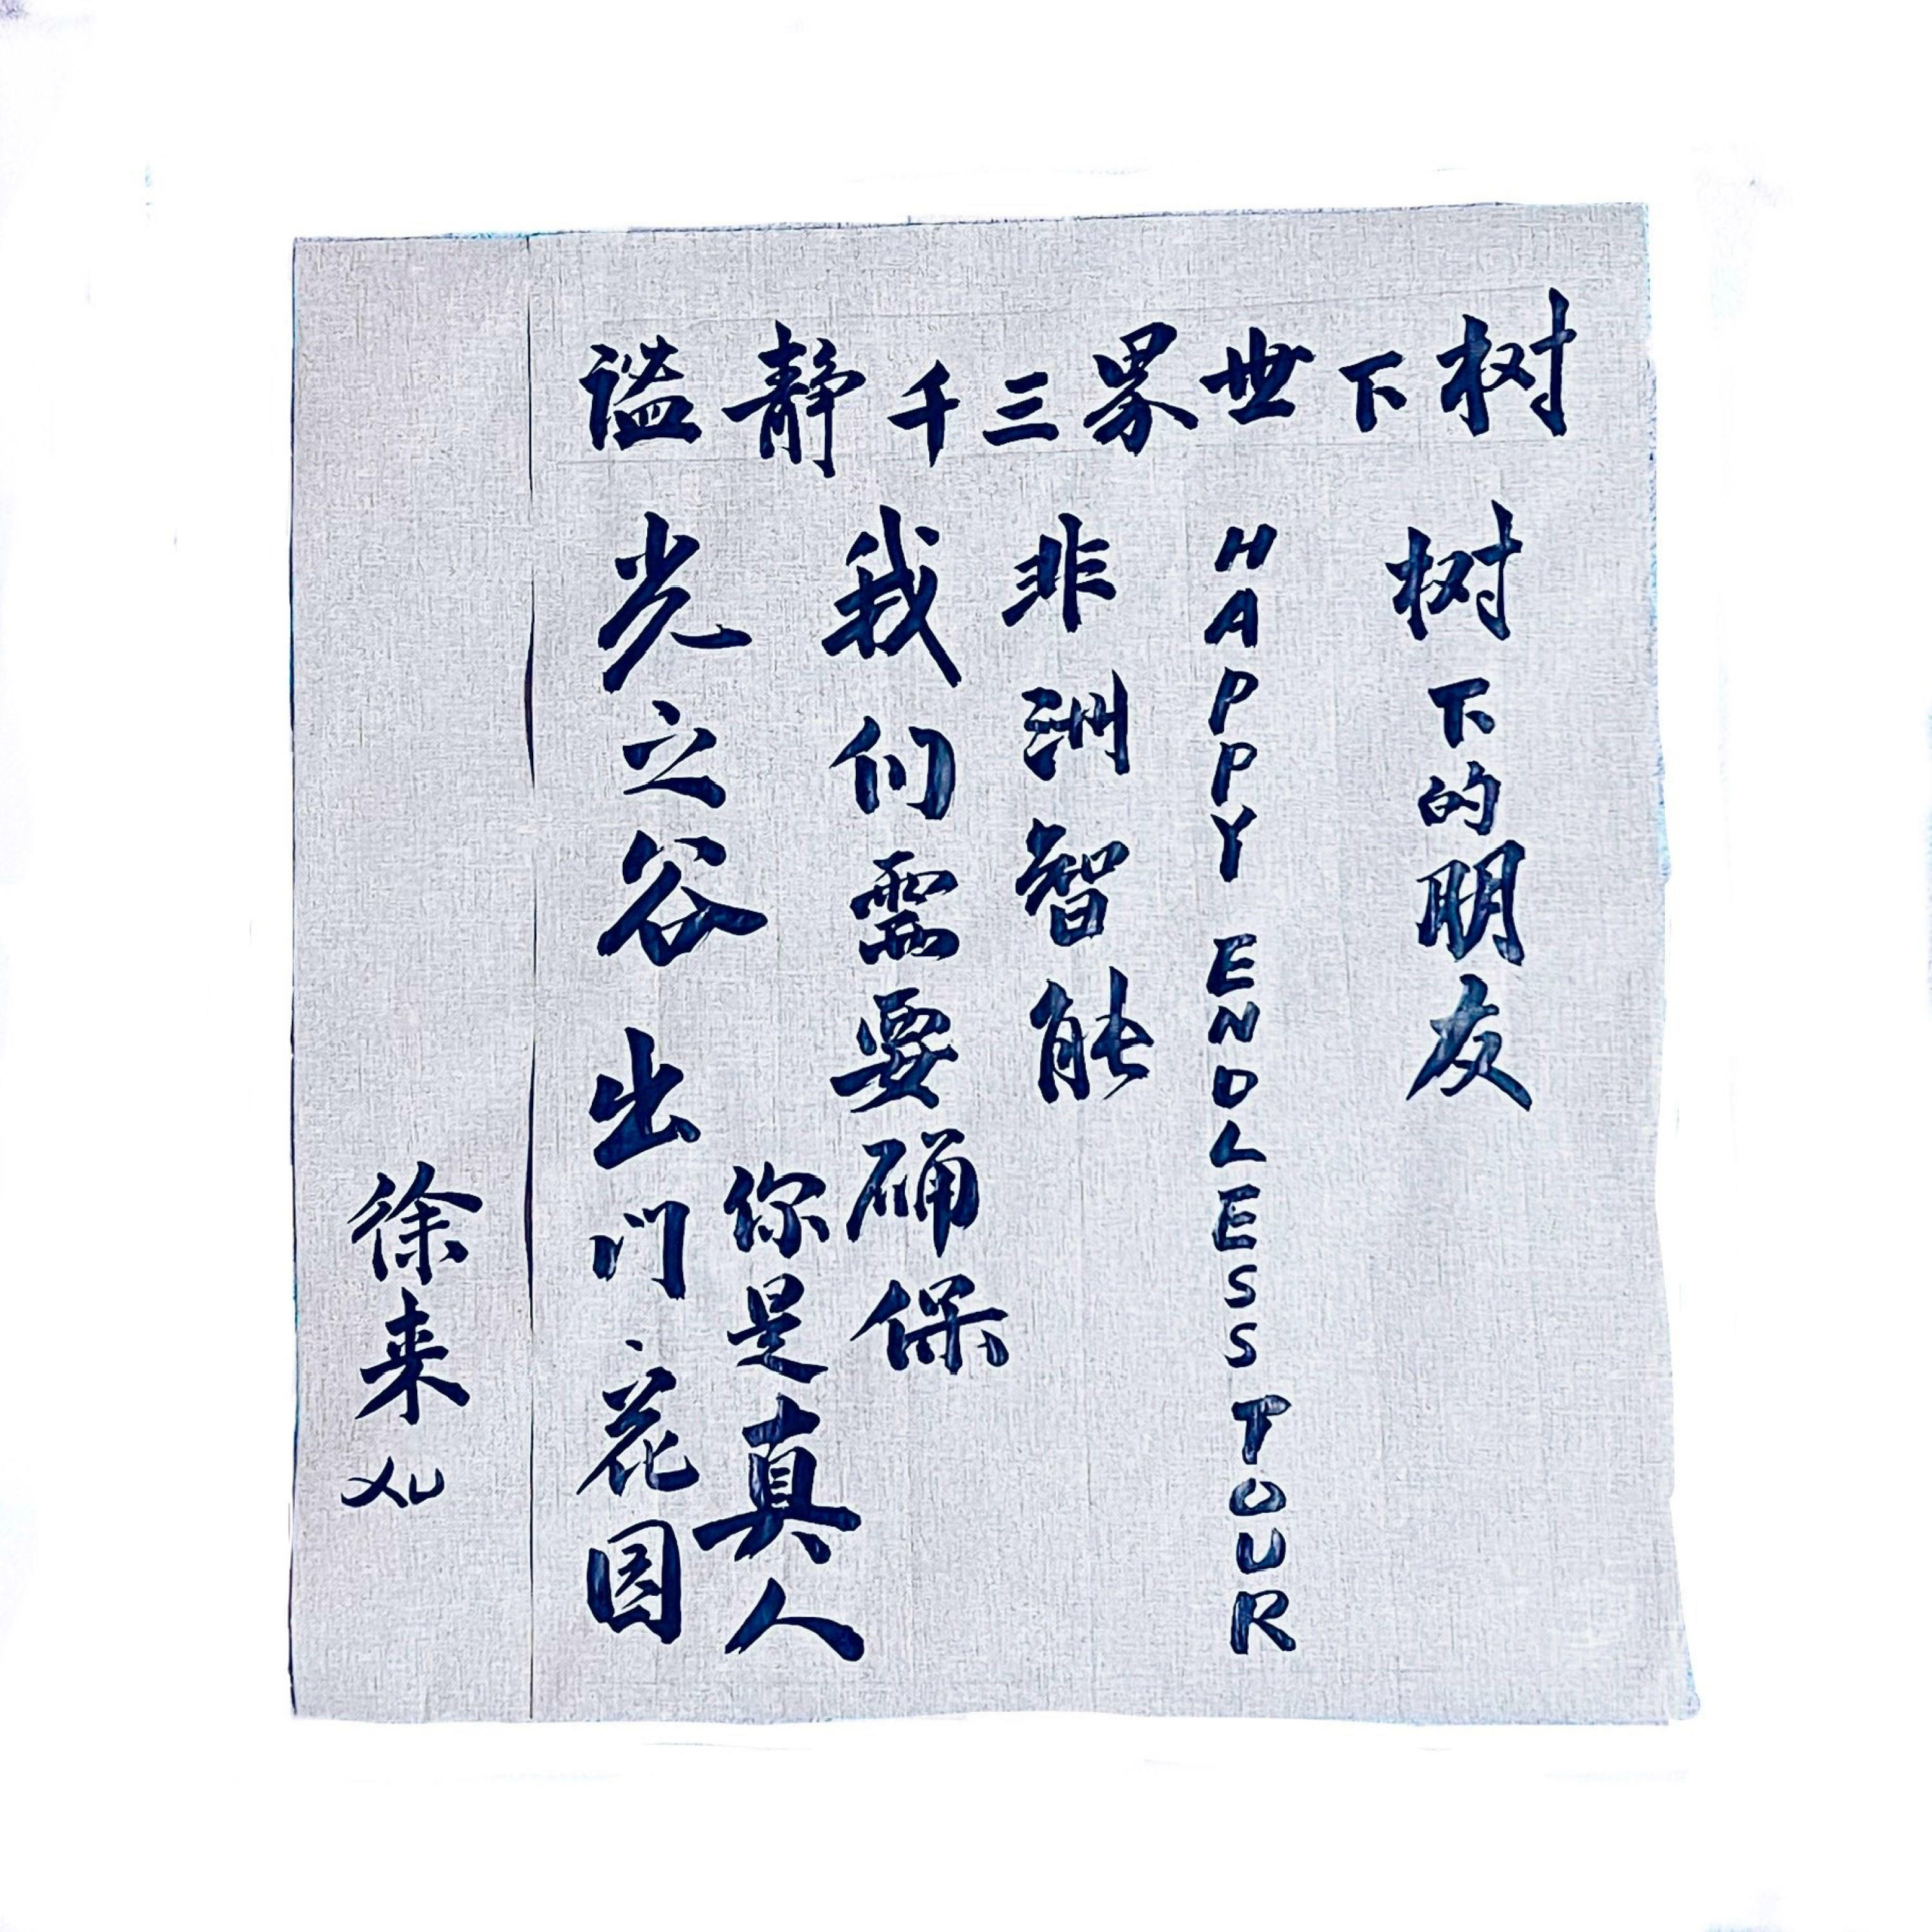 树下世界三千静谧
树下的朋友
HAPPY ENDLESS TOUR
非洲智能
我们需要确保
你是真人
光之谷 出门、花园
徐来